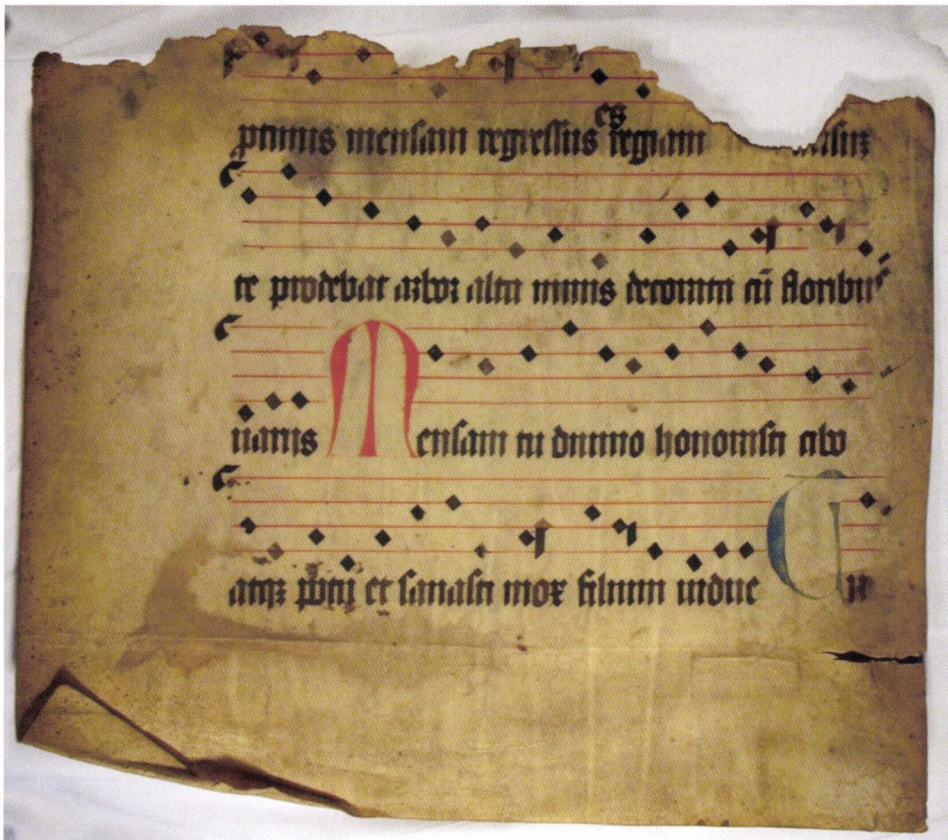 es
ptimis mensam regressus regiam
te prodebat arbor alta nimis decorata cū floribus
uarijs Mensam tu diuino honorasti cibo
atqꝫ et sanasti mox filium uidue